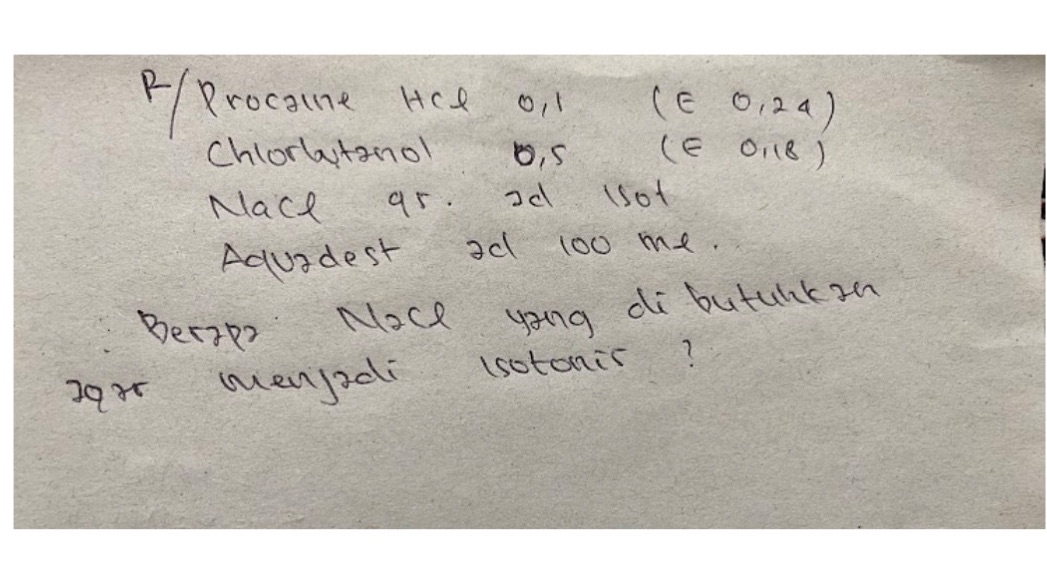 R/ Procaine HCl 0,1 (E 0,24)
Chlorbutanol 0,5 (E 0,18)
NaCl qs. ad isot
Aquadest ad 100 ml.
Berapa NaCl yang di butuhkan
agar menjadi isotonis ?